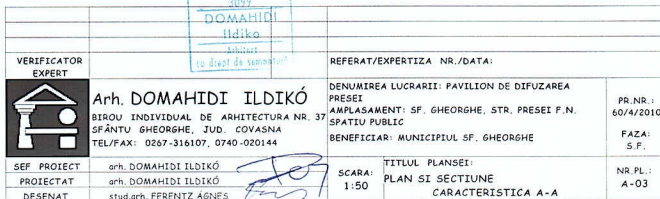 3099
DOMAHIDI
Ildiko
Arhitect
cu drept de semnatura
VERIFICATOR
EXPERT
REFERAT/EXPERTIZA NR./DATA:
Arh. DOMAHIDI ILDIKÓ
BIROU INDIVIDUAL DE ARHITECTURA NR. 37
SFÂNTU GHEORGHE, JUD. COVASNA
TEL/FAX: 0267-316107, 0740-020144
DENUMIREA LUCRARII: PAVILION DE DIFUZAREA
PRESEI
AMPLASAMENT: SF. GHEORGHE, STR. PRESEI F.N.
SPATIU PUBLIC
BENEFICIAR: MUNICIPIUL SF. GHEORGHE
PR.NR.:
60/4/2010
FAZA:
S.F.
SEF PROIECT arh. DOMAHIDI ILDIKÓ
PROIECTAT arh. DOMAHIDI ILDIKÓ
DESENAT stud.arh. FERENTZ ÁGNES
SCARA:
1:50
TITLUL PLANSEI:
PLAN SI SECTIUNE
CARACTERISTICA A-A
NR.PL.:
A-03